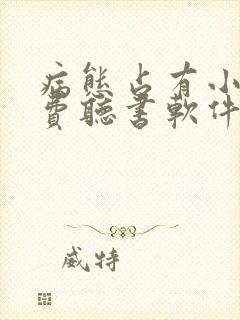 病態占有小
費聽書軟件
威特